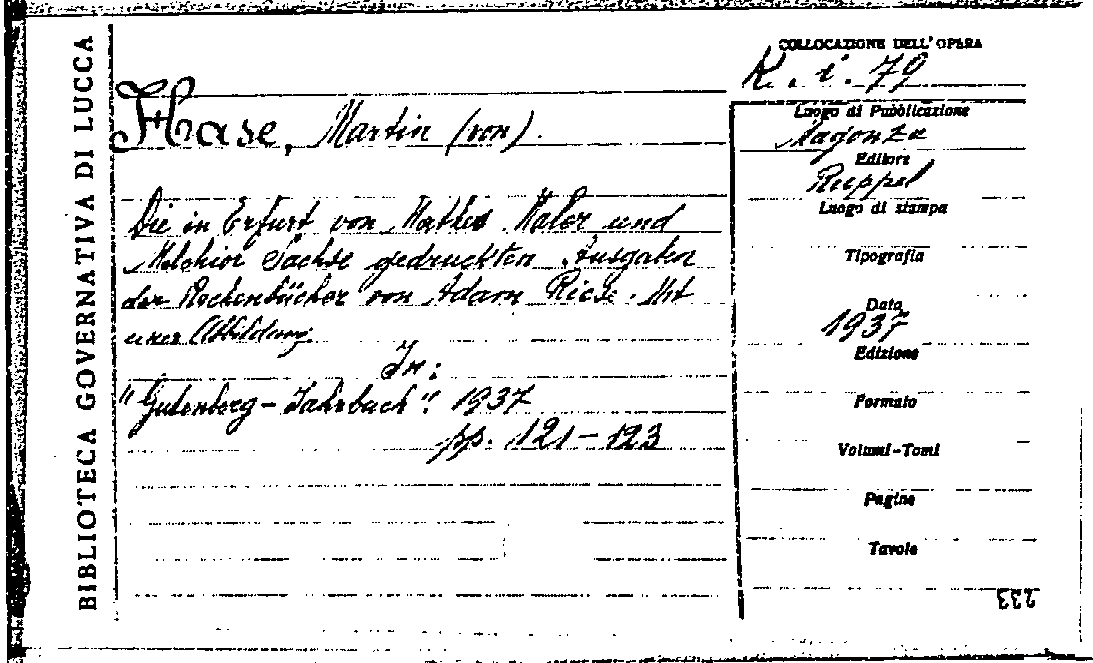 BIBLIOTECA GOVERNATIVA DI LUCCA
Hase, Martin (von).
Die in Erfurt von Mathes Maler und
Melchior Sachse gedruckten Ausgaben
der Rechenbücher von Adam Riese. Mit
einer Abbildung.
In:
"Gutenberg-Jahrbuch". 1937
pp. 121-123
COLLOCAZIONE DELL'OPERA
K. i. 79
Luogo di Pubblicazione
Magonza
Editore
Ruppel
Luogo di stampa
Tipografia
Data
1937
Edizione
Formato
Volumi-Tomi
Pagine
Tavole
233